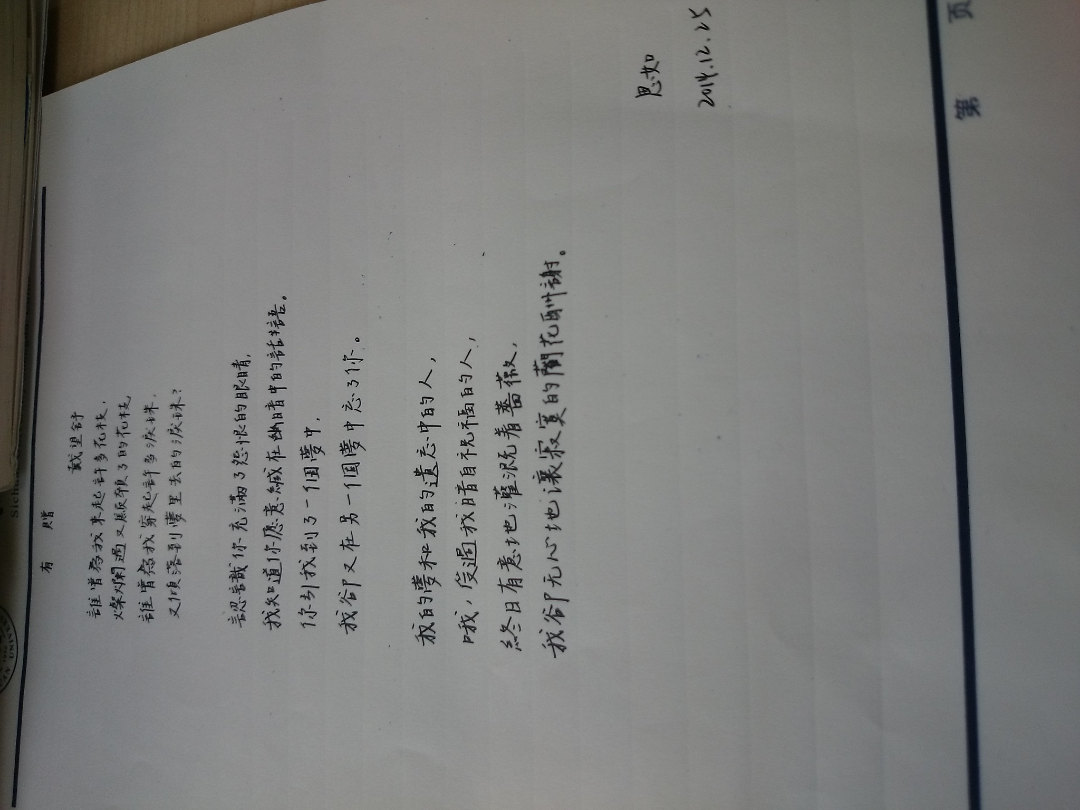 有 赠
戴望舒
誰曾為我束起許多花枝,
燦爛過又憔悴了的花枝
誰曾為我穿起許多淚珠,
又傾落到夢里去的淚珠?
認識你充滿了怨恨的眼睛,
我知道你愿意緘在幽暗中的話語。
你引我到了一個夢中,
我卻又在另一個夢中忘了你。
我的夢和我的遺忘中的人,
哦,受過我暗自祝福的人,
終日有意地灌溉着薔薇,
我卻无心地讓寂寞的蘭花酬謝。
思如
2014.12.25
第 页